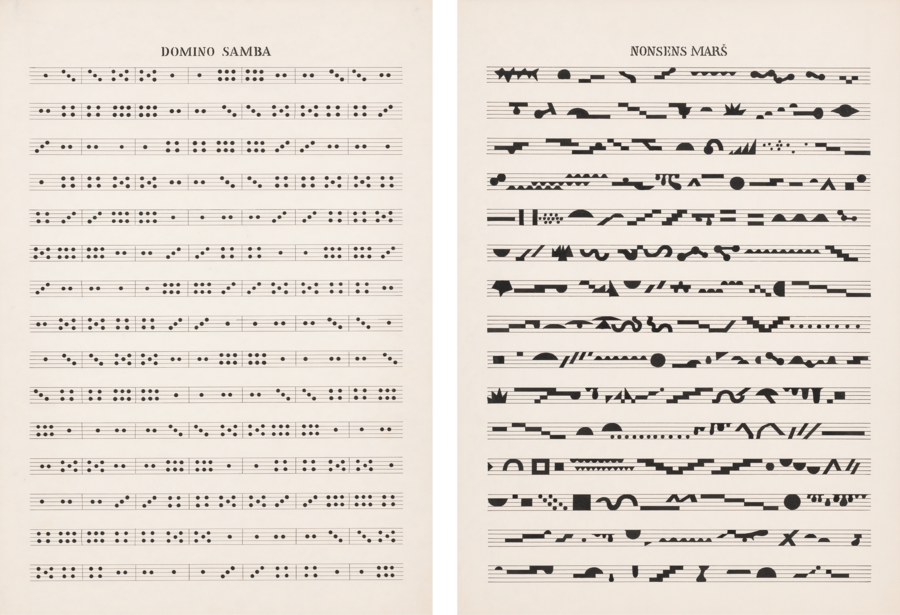 DOMINO SAMBA
NONSENS MARŠ